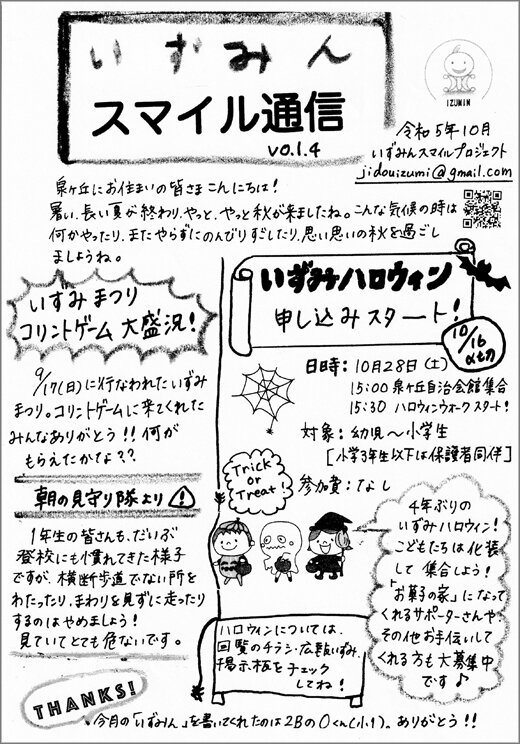 いずみん
スマイル通信
vo.1.4
IZUMIN
令和5年10月
いずみんスマイルプロジェクト
jidouizumi@gmail.com
泉ヶ丘にお住まいの皆さまこんにちは!
暑い、長い夏が終わり、やっと、やっと秋が来ましたね。こんな気候の時は
何かやったり、またやらずにのんびりすごしたり、思い思いの秋を過ごし
ましようね。
いずみまつり
コリントゲーム大盛況!
9/17(日)に行なわれたいずみ
まつり。コリントゲームに来てくれた
みんなありがとう!!何が
もらえたかな??
朝の見守り隊より
1年生の皆さんも、だいぶ
登校にも慣れてきた様子
ですが、横断歩道でない所を
わたったり、まわりを見ずに走ったり
するのはやめましょう!
見ていてとても危ないです。
THANKS!
いずみハロウィン
申し込みスタート!
10/16
〆切
日時:10月28日(土)
15:00 泉ヶ丘自治会館集合
15:30 ハロウィンウオークスタート!
対象:幼児〜小学生
[小学3年生以下は保護者同伴]
参加費:なし
Trick
or
Treat!
4年ぶりの
いずみハロウィン!
こどもたちは仮装
して集合しよう!
「お菓子の家」になって
くれるサポーターさんや、
その他お手伝いして
くれる方も大募集中
です♪
ハロウィンについては、
回覧のチラシ・広報いずみ、
掲示板をチェック
してね!
今月の「いずみん」を書いてくれたのは2BのOくん(小1)。ありがとう!!